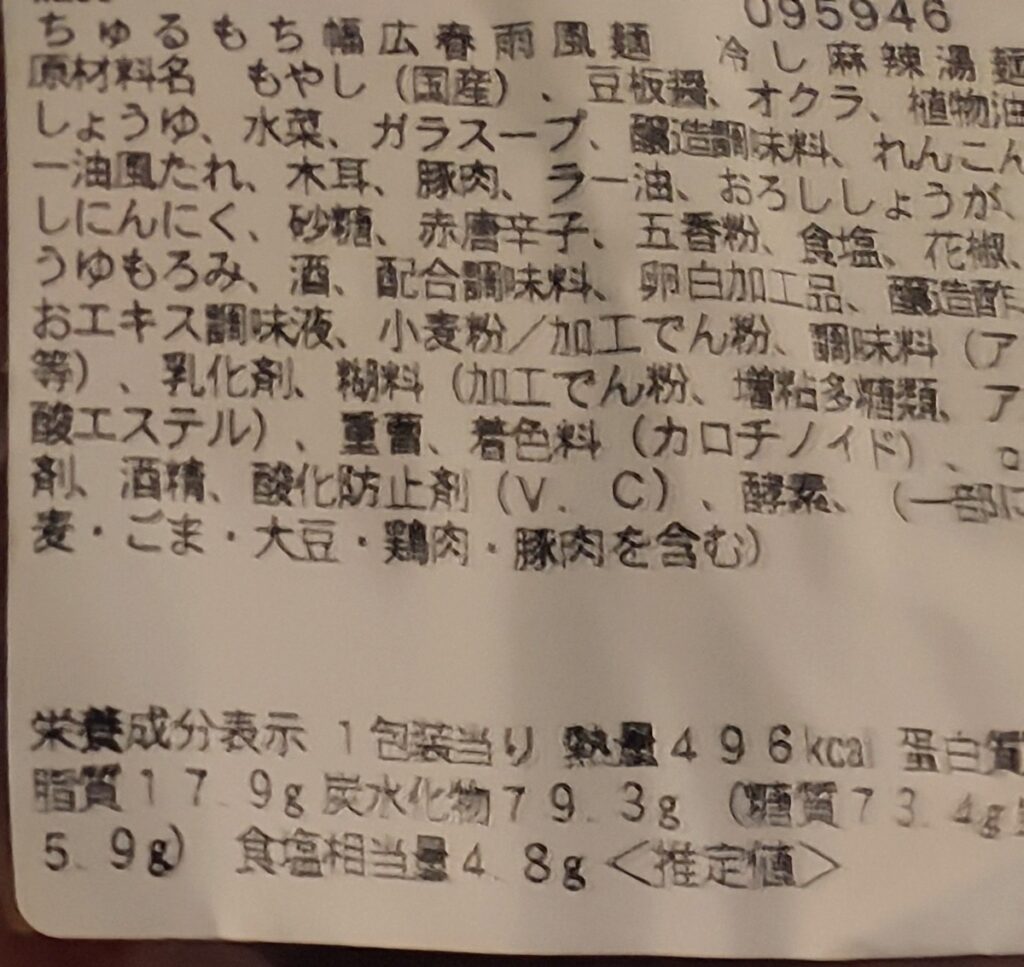 095946
ちゅるもち幅広春雨風麺 冷し麻辣湯麺
原材料名 もやし（国産）、豆板醤、オクラ、植物油
しょうゆ、水菜、ガラスープ、醸造調味料、れんこん
ー油風たれ、木耳、豚肉、ラー油、おろししょうが、
しにんにく、砂糖、赤唐辛子、五香粉、食塩、花椒、
うゆもろみ、酒、配合調味料、卵白加工品、醸造酢
おエキス調味液、小麦粉／加工でん粉、調味料（ア
等）、乳化剤、糊料（加工でん粉、増粘多糖類、ア
酸エステル）、重曹、着色料（カロチノイド）、
剤、酒精、酸化防止剤（V．C）、酵素、（一部に
麦・ごま・大豆・鶏肉・豚肉を含む）
栄養成分表示 1包装当り 熱量496kcal 蛋白質
脂質17.9g 炭水化物79.3g （糖質73.4g
5.9g） 食塩相当量4.8g＜推定値＞